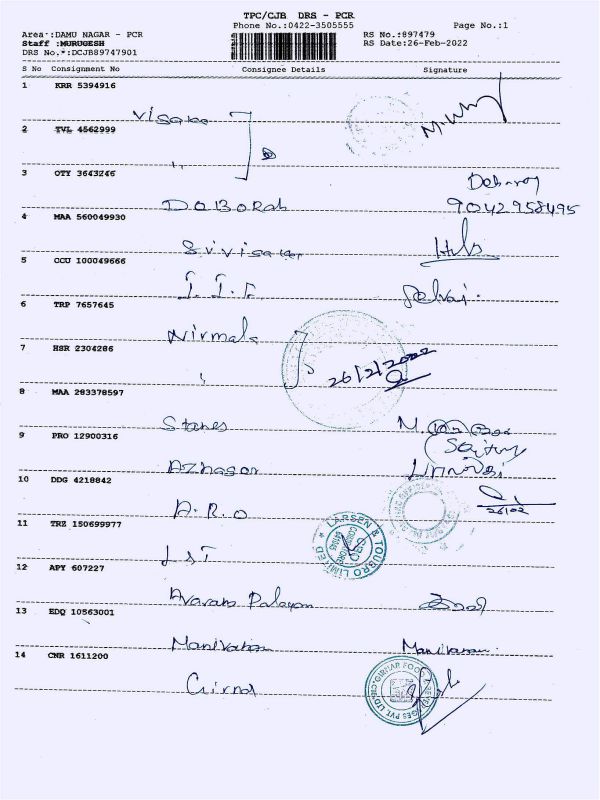 TPC/CJB DRS - PCR
Phone No.:0422-3505555
Page No.:1
Area :DAMU NAGAR - PCR
RS No.:897479
Staff :MURUGESH
RS Date:26-Feb-2022
DRS No.*:DCJB89747901
S No Consignment No Consignee Details Signature
1 KRR 5394916
Visaka
2 TVL 4562999
"
3 OTY 3643246
DOBORah
90429 58495
4 MAA 560049930
Srivisakar
5 CCU 100049666
I. I. F.
Selvi.
6 TRP 7657645
Nirmala
7 HSR 2304286
26/2/2022
8 MAA 283378597
Stanes
9 PRO 12900316
Azhagar
10 DDG 4218842
26/02
A. R. O
11 TRZ 150699977
LARSEN & TOUBRO LIMITED
L&T
12 APY 607227
Avaram Palayam
13 EDQ 10563001
Manivatan
14 CNR 1611200
Girnar
GIRNAR FOOD & BEVERAGES PVT. LTD.